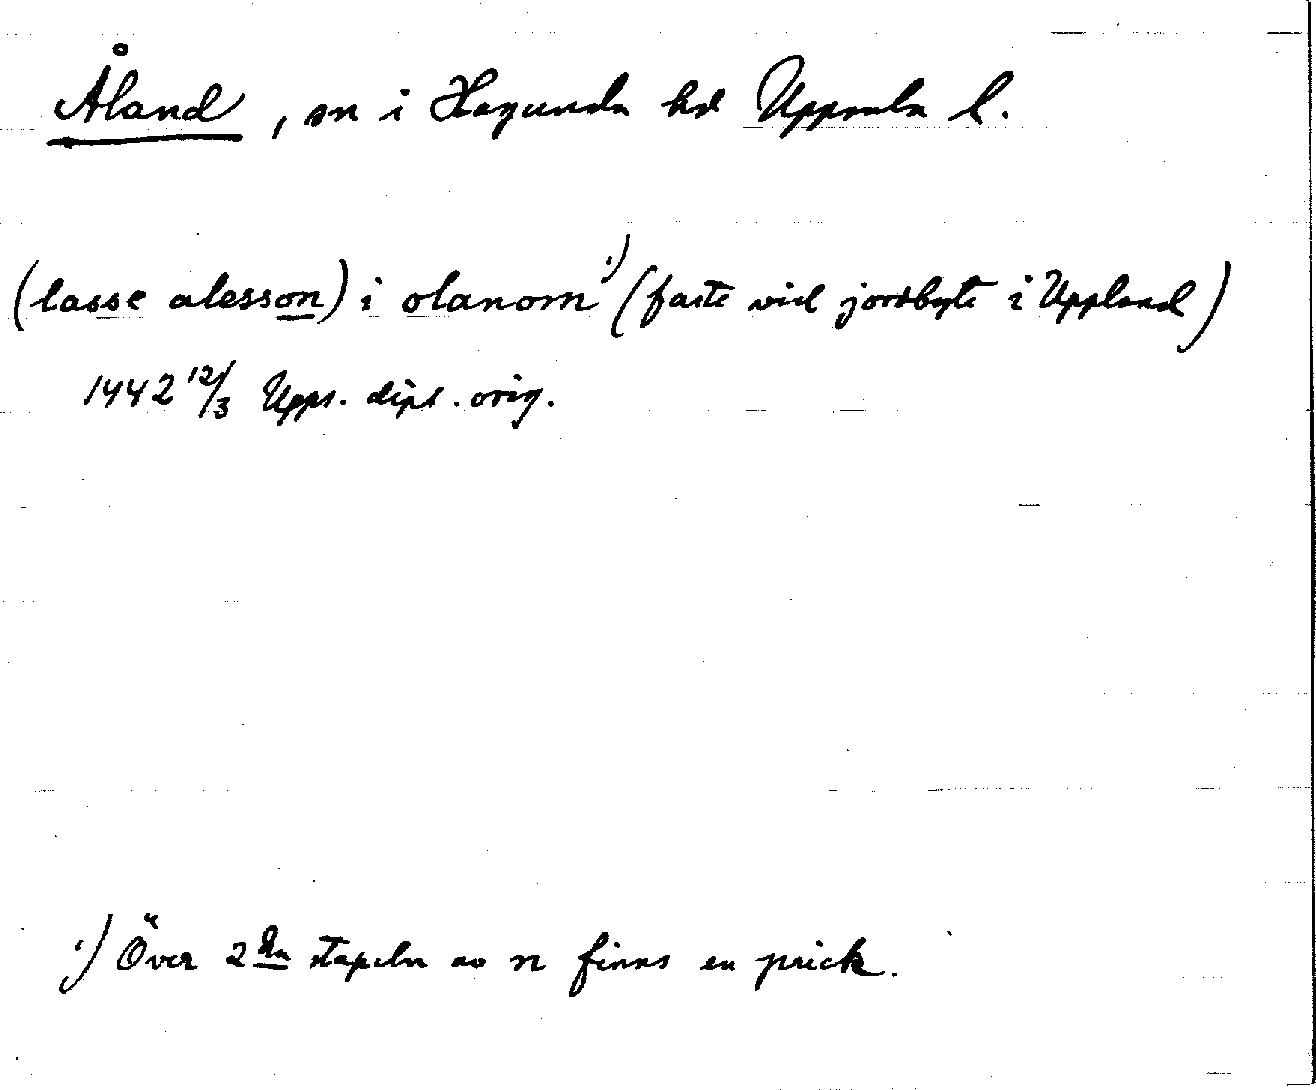 Åland, sn i Hagunda hd Uppsala l.
(lasse alesson) i olanom¹⁾ (faste vid jordbyte i Uppland)
1442 12/3 Upps. dipl. orig.
¹⁾ Över 2dra stapeln av n finns en prick.